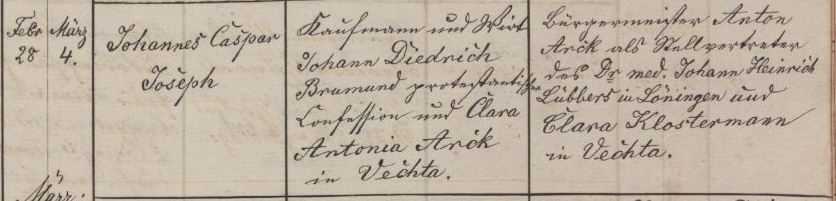 Febr
28
März
4.
Johannes Caspar
Joseph
Kaufmann und Wirt
Johann Diedrich
Bramund protestantischer
Confession und Clara
Antonia Arck
in Vechta.
Bürgermeister Anton
Arck als Stellvertreter
des Dr med. Johann Heinrich
Lübbers in Löningen und
Clara Klostermann
in Vechta.
März.